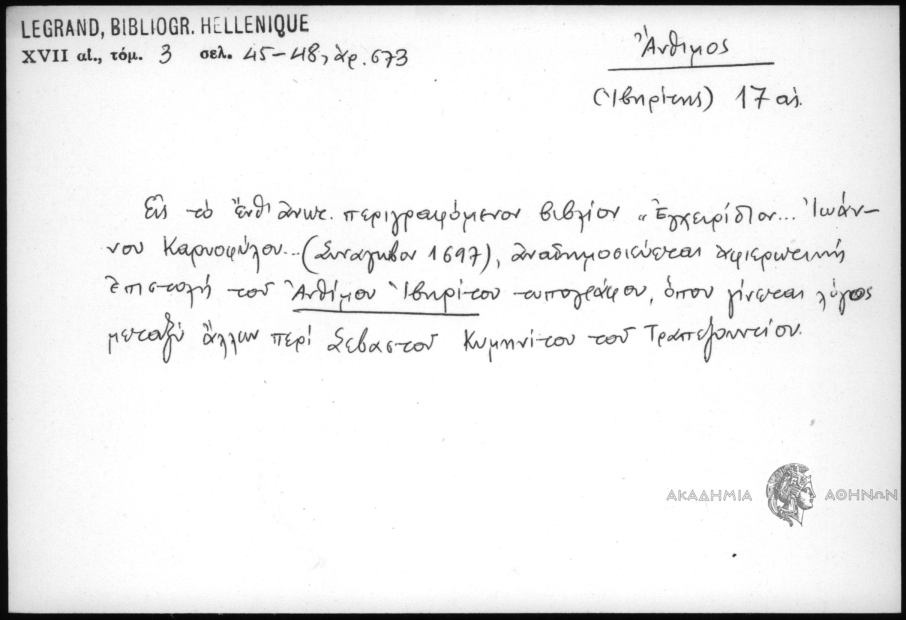 LEGRAND, BIBLIOGR. HELLENIQUE
XVII αἰ., τόμ. 3 σελ. 45-48, ἀρ. 673
Ἄνθιμος
(Ἰβηρίτης) 17 αἰ.
Εἰς τὸ ἔνθ' ἀνωτ. περιγραφόμενον βιβλίον "Ἐγχειρίδιον... Ἰωάν-
νου Καρυοφύλου... (Συναγωβον 1697), ἀναδημοσιεύεται ἀφιερωτική
ἐπιστολή τοῦ Ἀνθίμου Ἰβηρίτου τυπογράφου, ὅπου γίνεται λόγος
μεταξύ ἄλλων περί Σεβαστοῦ Κυμηνίτου τοῦ Τραπεζουντίου.
ΑΚΑΔΗΜΙΑ ΑΘΗΝΩΝ